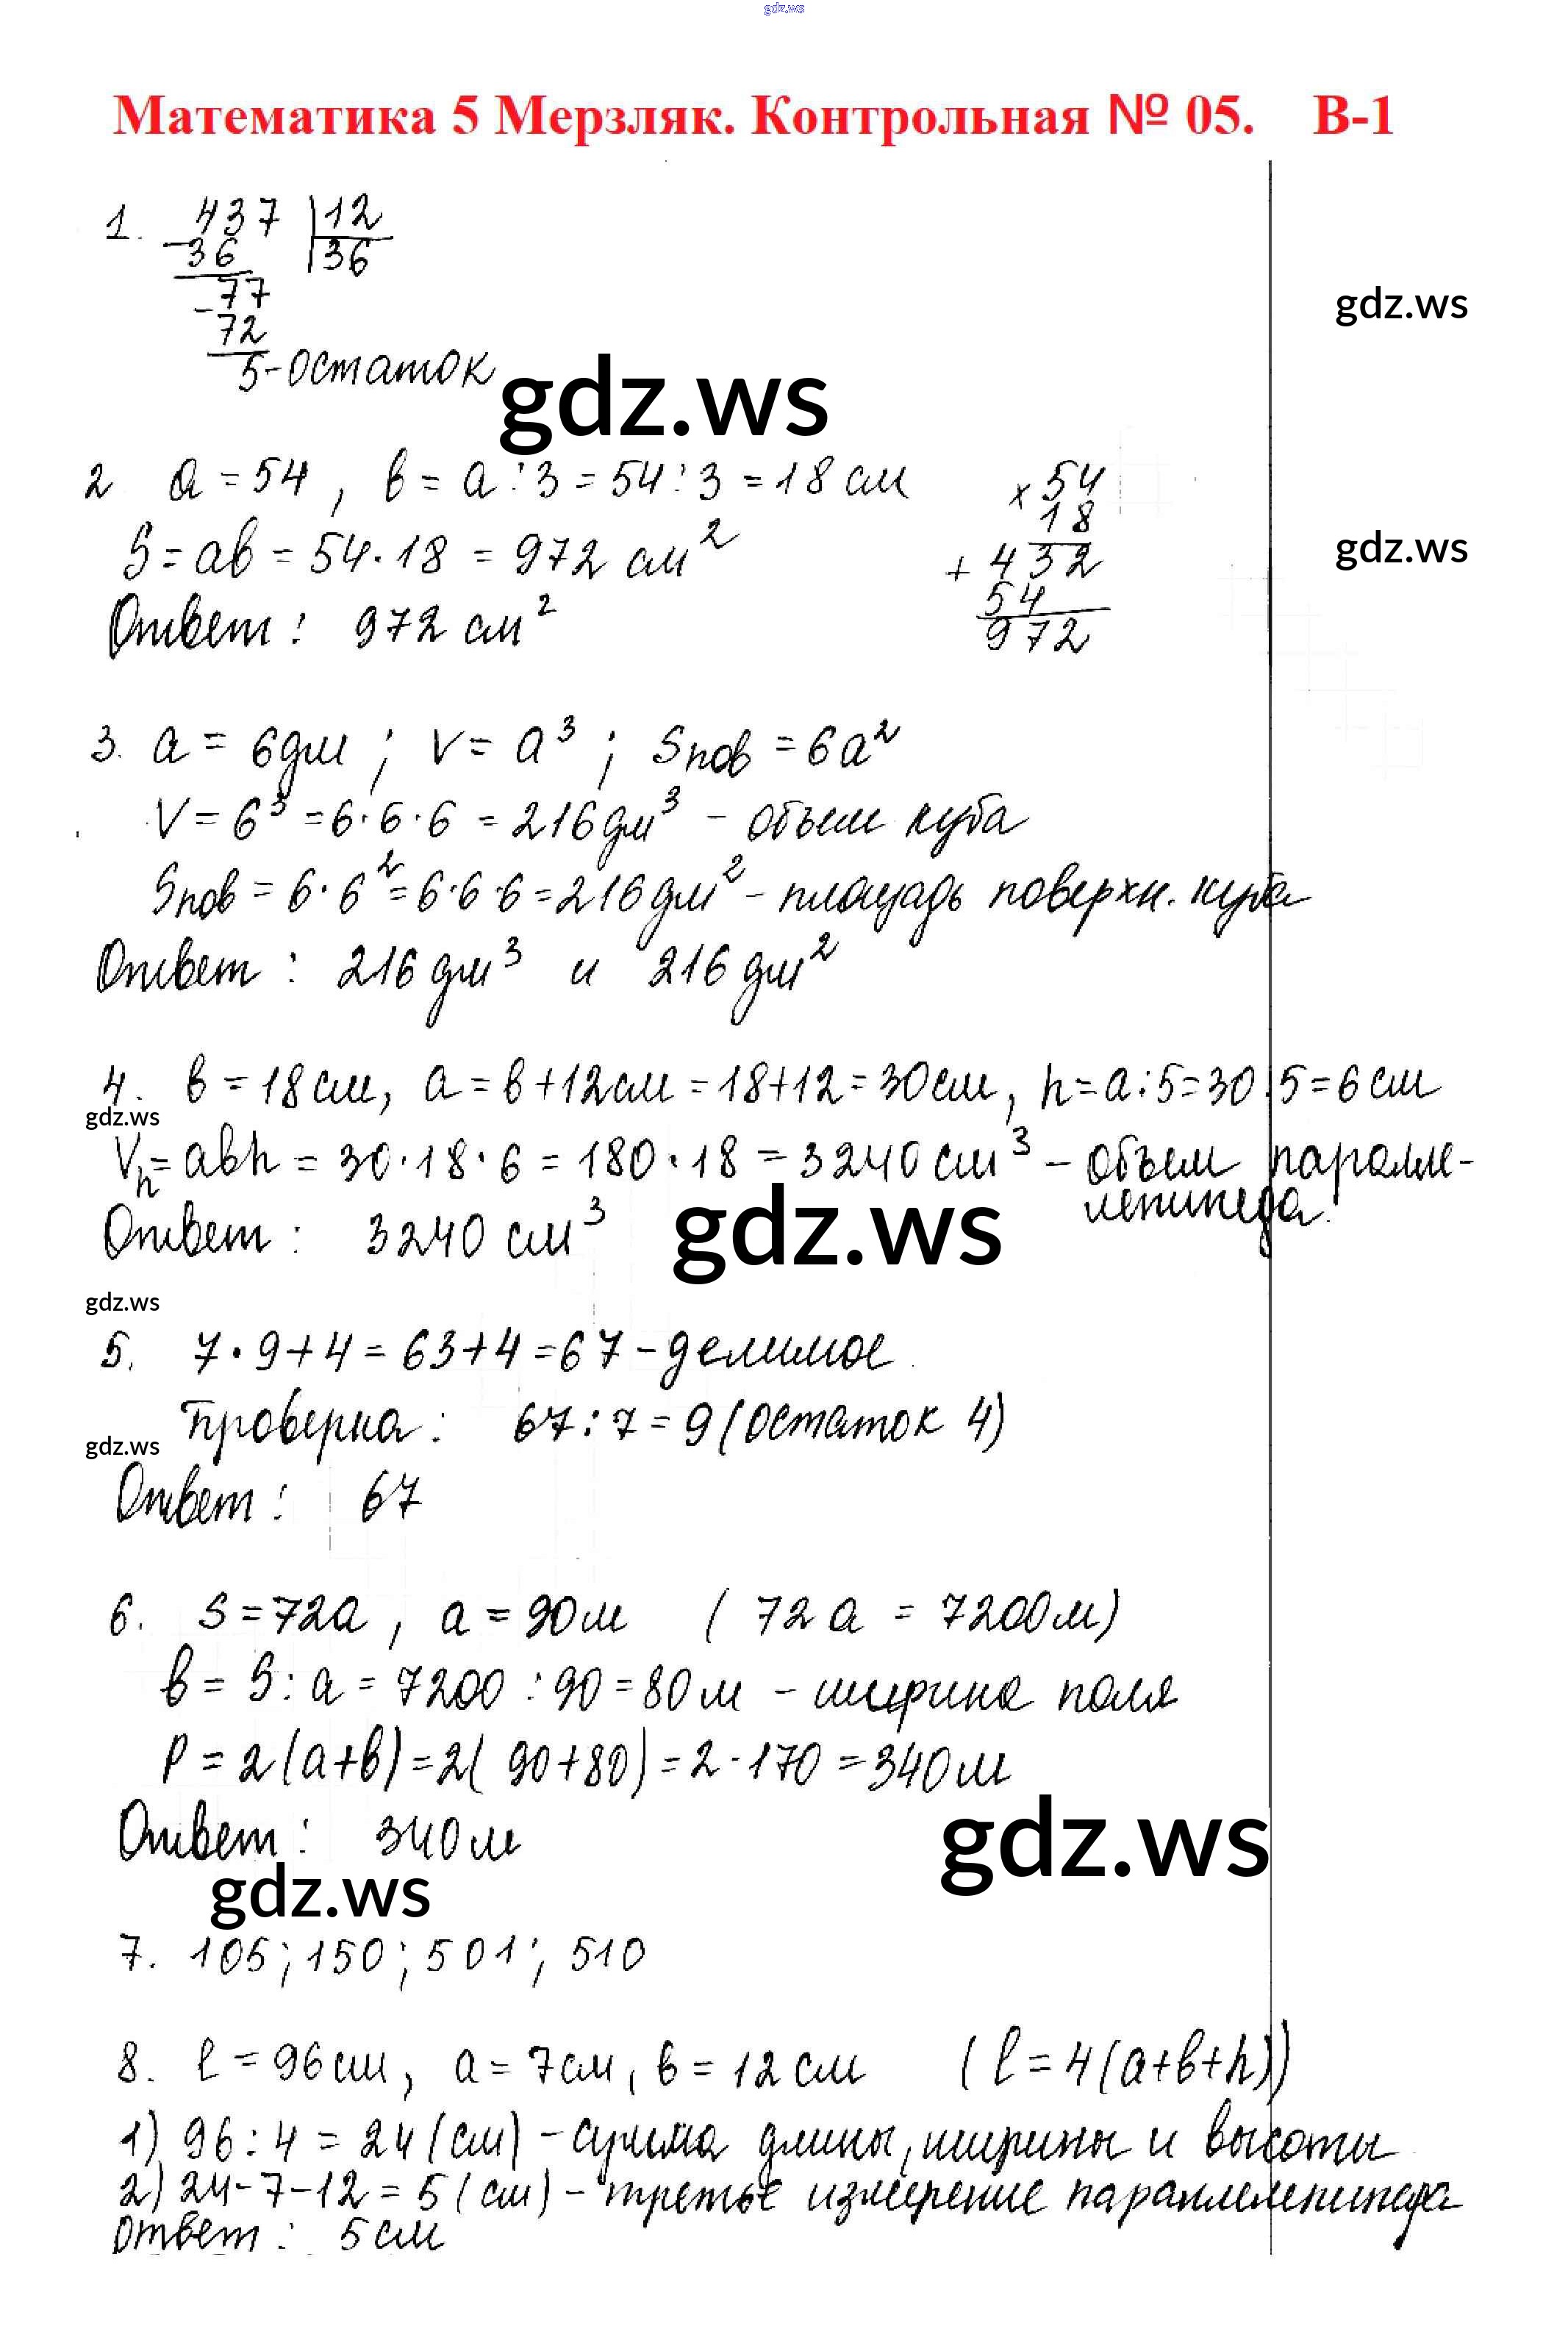 gdz.ws
Математика 5 Мерзляк. Контрольная № 05. В-1
1. 437 |12
- 36 |36
- 77
72
5-остаток
gdz.ws
gdz.ws
2 a = 54, b = a : 3 = 54 : 3 = 18 см
× 54
18
S = ab = 54 · 18 = 972 см²
+ 432
54
972
gdz.ws
Ответ : 972 см²
3. a = 6дм ; V = a³ ; Sпов = 6a²
V = 6³ = 6 · 6 · 6 = 216 дм³ - объем куба
Sпов = 6 · 6² = 6 · 6 · 6 = 216 дм² - площадь поверхн. куба
Ответ : 216 дм³ и 216 дм²
4. b = 18см, a = b + 12см = 18+12 = 30см, h = a : 5 = 30 : 5 = 6 см
gdz.ws
Vh = abh = 30 · 18 · 6 = 180 · 18 = 3240 см³ - объем паралле-
лепипеда.
Ответ : 3240 см³
gdz.ws
gdz.ws
5. 7 · 9 + 4 = 63 + 4 = 67 - делимое
Проверка : 67 : 7 = 9 (остаток 4)
gdz.ws
Ответ : 67
6. S = 72a, a = 90м ( 72 a = 7200м)
b = S : a = 7200 : 90 = 80 м - ширина поля
P = 2(a+b) = 2( 90+80) = 2 · 170 = 340м
Ответ : 340м
gdz.ws
gdz.ws
7. 105; 150; 501; 510
8. l = 96 см, a = 7см, b = 12 см (l = 4(a+b+h))
1) 96 : 4 = 24 (см) - сумма длины, ширины и высоты
2) 24 - 7 - 12 = 5 (см) - третье измерение параллелепипеда
Ответ : 5 см